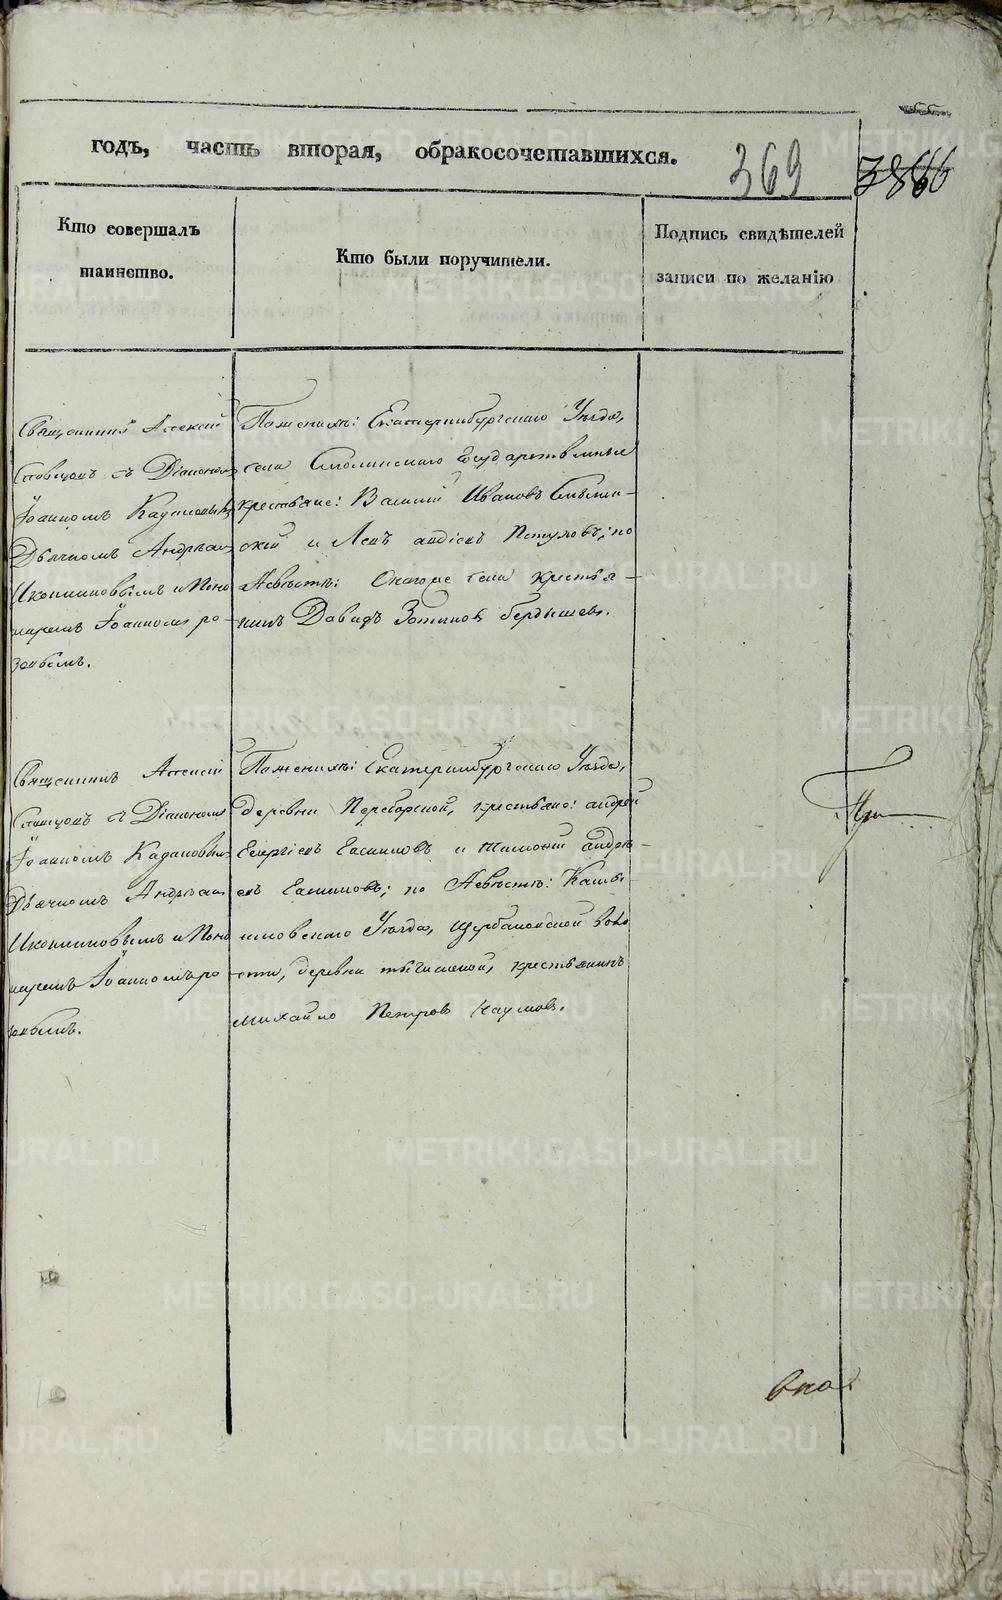 годъ, часть вторая, обракосочетавшихся. 369
Кто совершалъ таинство.
Кто были поручители.
Подпись свидѣтелей записи по желанію
Священникъ Алексѣй
съ Діакономъ
Іоанномъ
Дьячкомъ Андреемъ
Иконниковымъ и Поно
маремъ Іоанномъ ро-
зовымъ.
По женихѣ: Екатеринбургскаго Уѣзда,
села Смолинскаго Государственные
крестьяне: Василій Ивановъ
и Петуховъ; по
Невѣстѣ: Онагоже села крестья-
нинъ Давидъ Зотиковъ бердышевъ.
Священникъ Алексѣй
съ Діакономъ
Іоанномъ
Дьячкомъ Андреемъ
Иконниковымъ и Поно
маремъ Іоанномъ ро
зовымъ.
По женихѣ: Екатеринбургскаго Уѣзда,
деревни крестьяне: андрей
и андрѣ-
евъ по Невѣстѣ: Камы-
шловскаго Уѣзда, щербаковской воло
сти, деревни крестьянинъ
михайло Петровъ Наумовъ.
METRIKI.GASO-URAL.RU